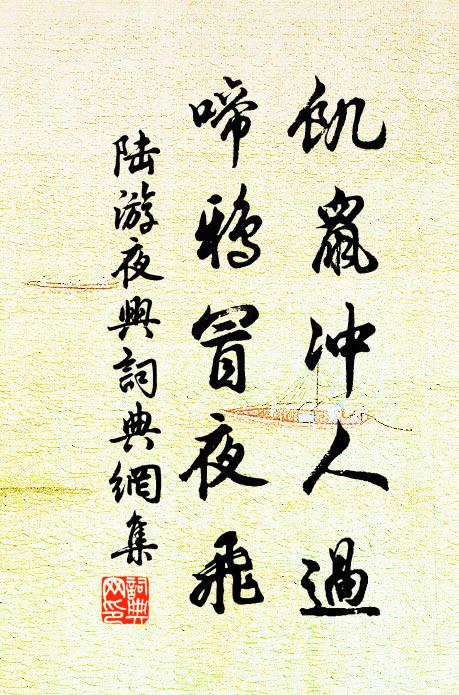 飢鼠冲人過
啼鴉冒夜飛
陸游夜興詞典網集
詞典網印